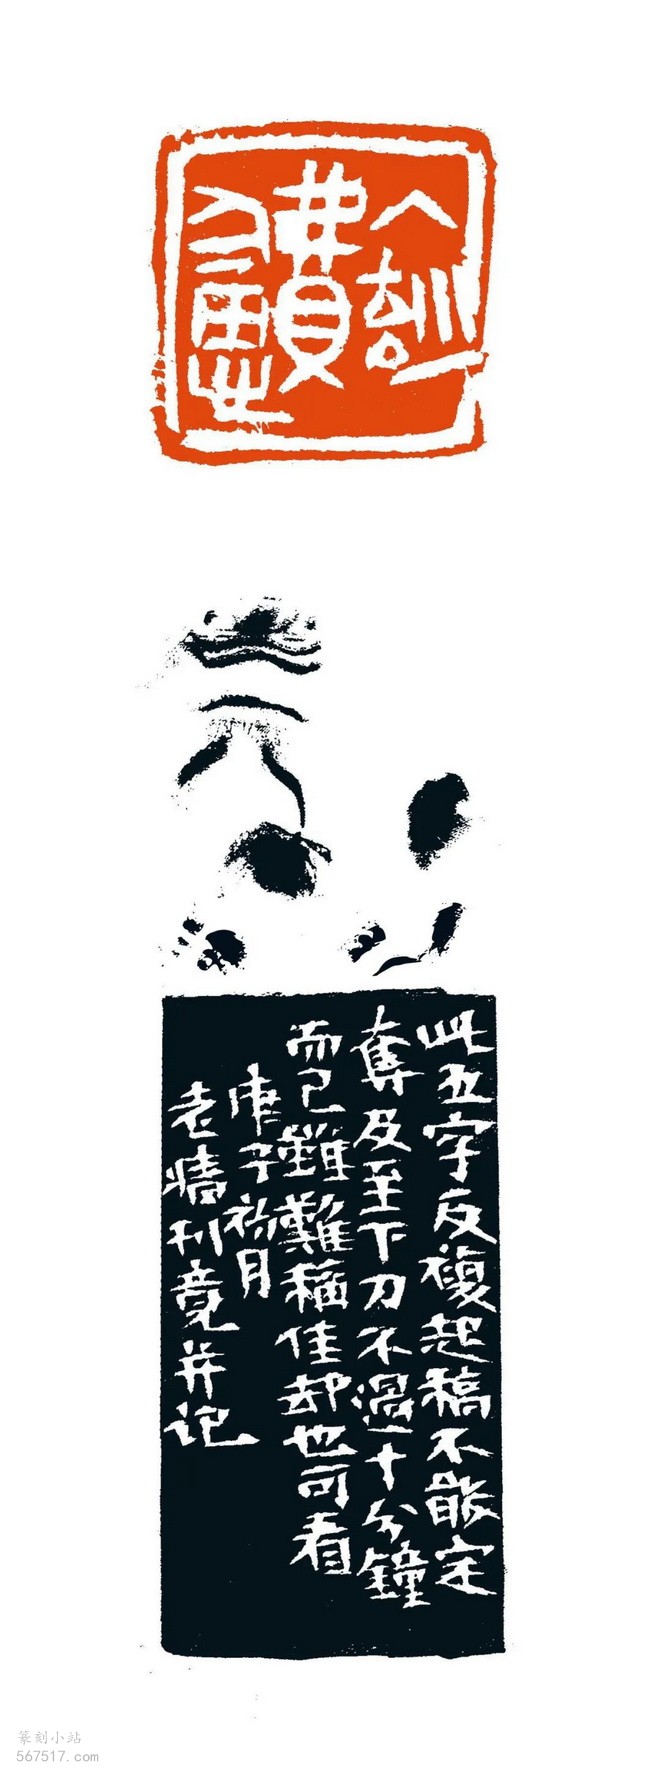 此五字反複起稿不能定
奪及至下刀不過十分鐘
而已雖難稱佳却也可看
庚子初月
老刊竟并記
篆刻小站
567517.com